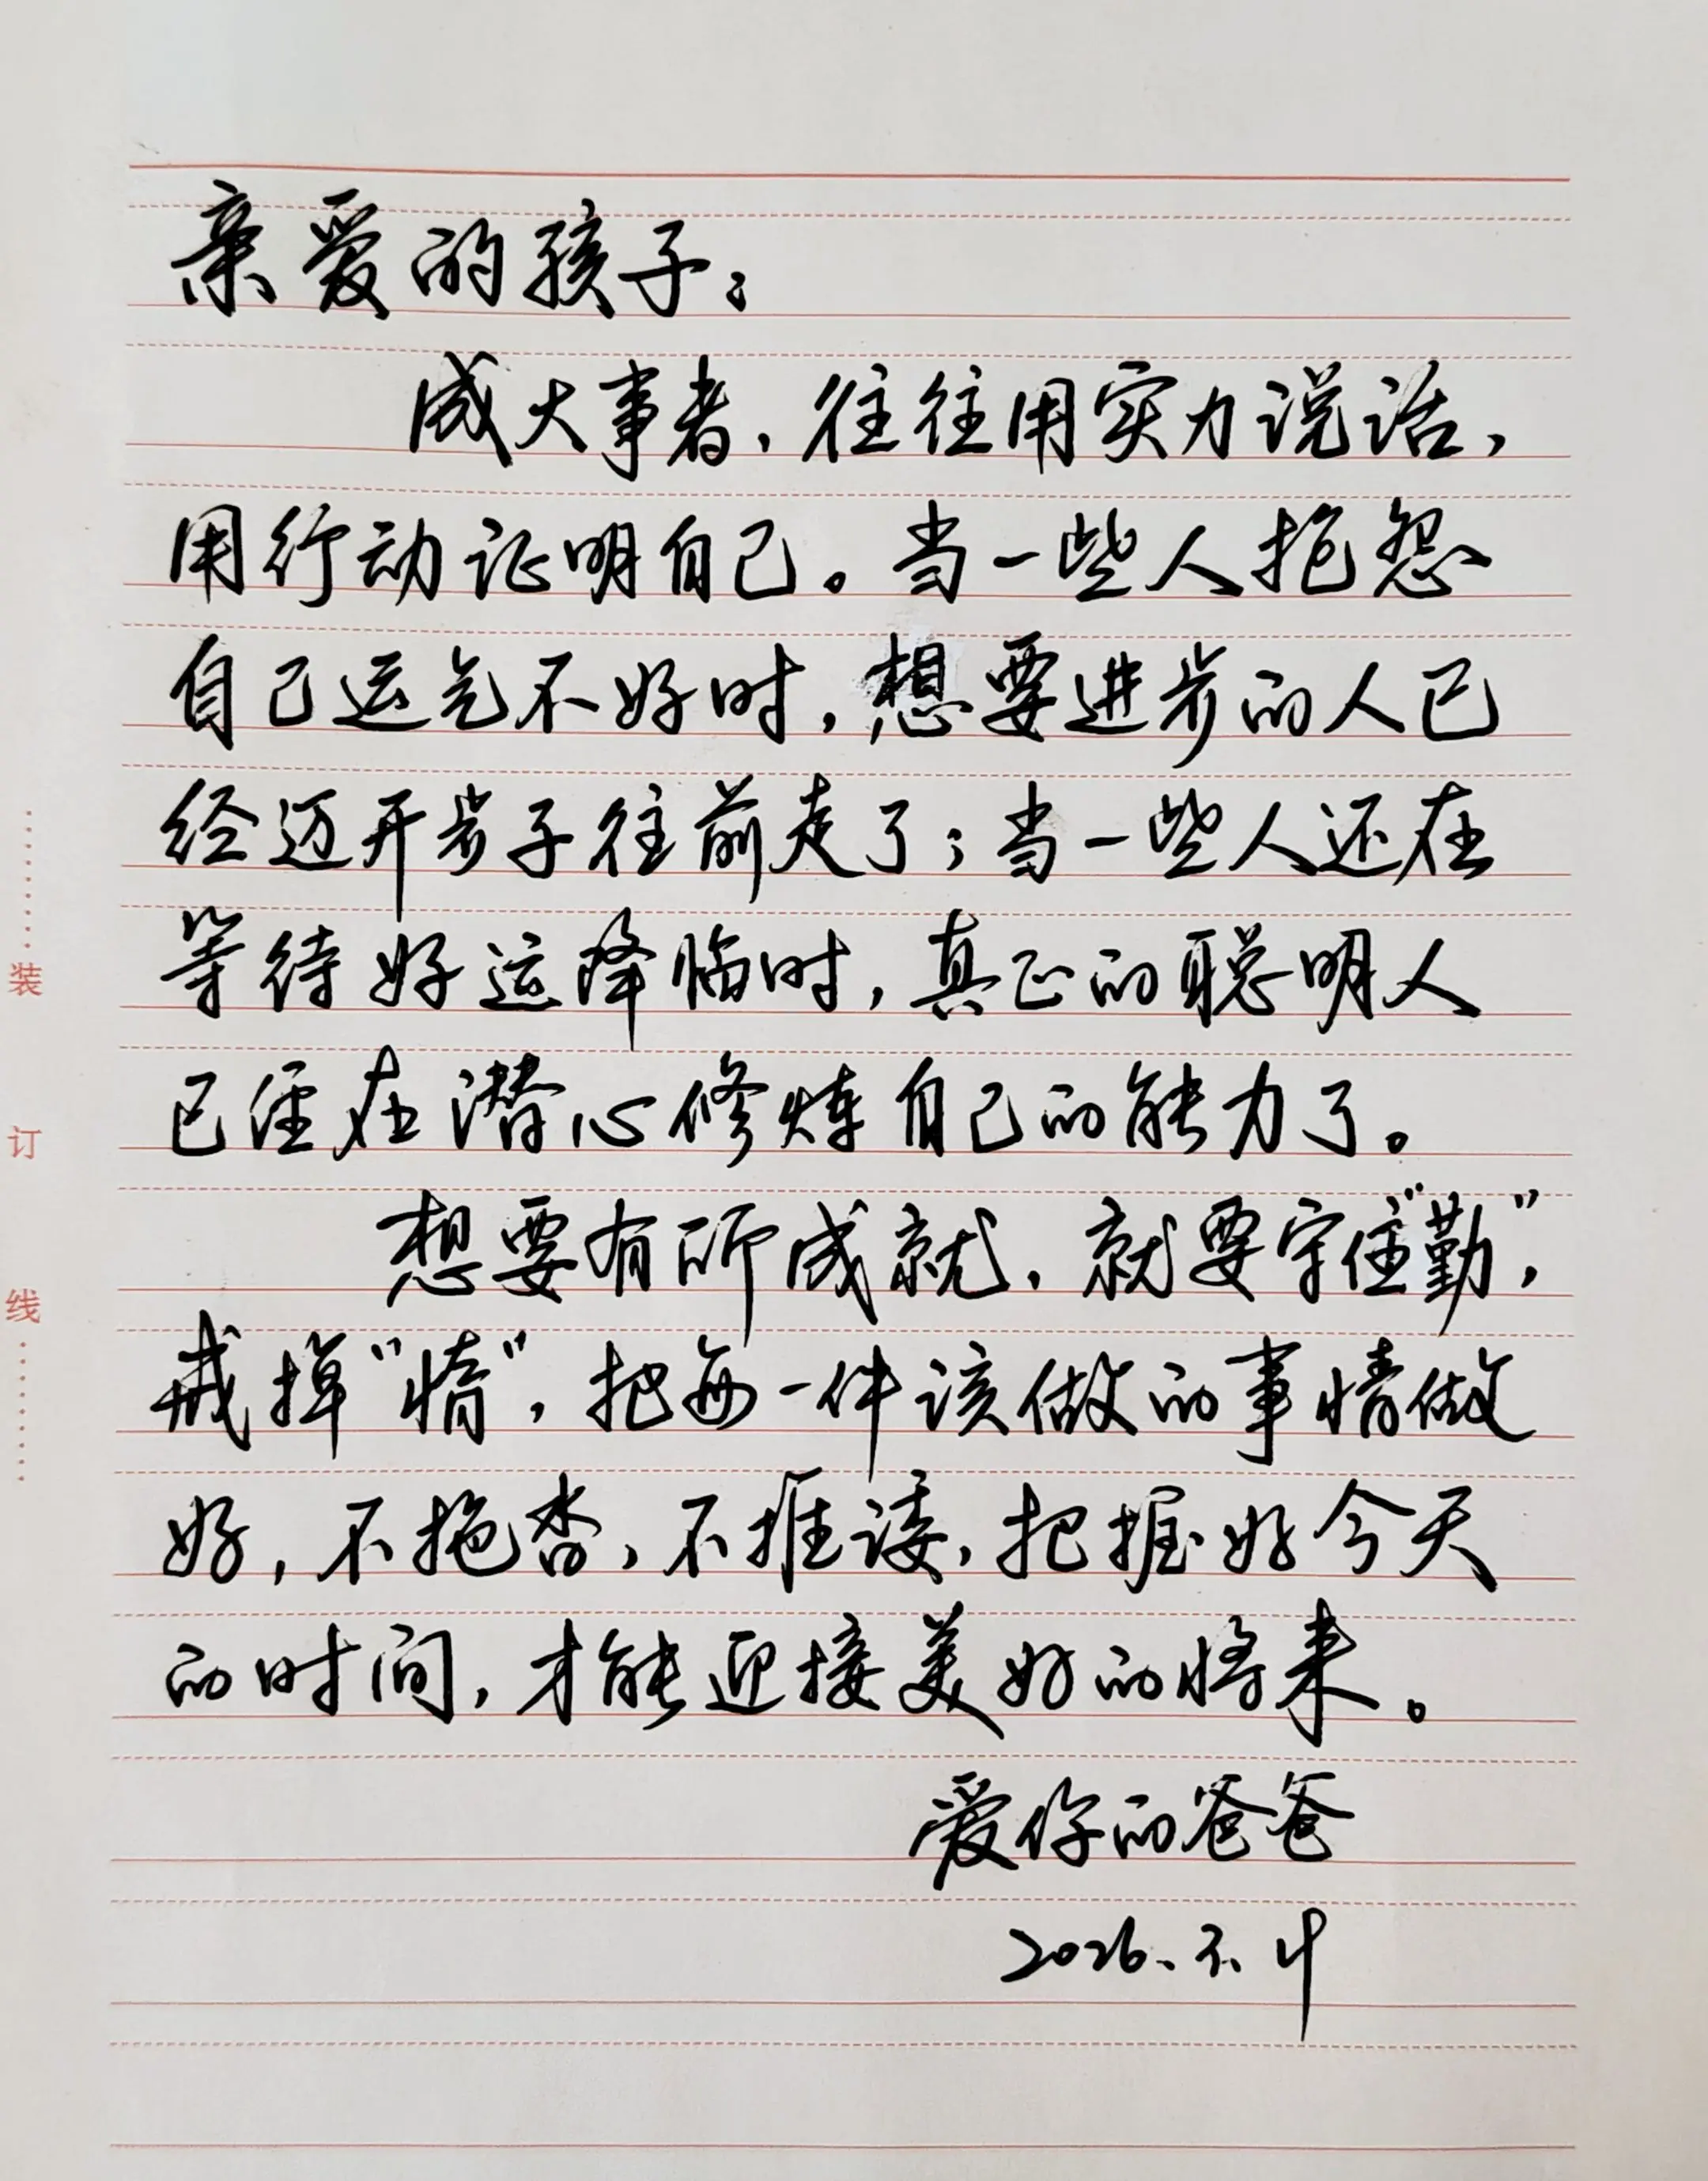 亲爱的孩子：
成大事者，往往用实力说话，
用行动证明自己。当一些人抱怨
自己运气不好时，想要进步的人已
经迈开步子往前走了；当一些人还在
等待好运降临时，真正的聪明人
已经在潜心修炼自己的能力了。
想要有所成就，就要守住“勤”，
戒掉“惰”，把每一件该做的事情做
好，不拖沓，不推诿，把握好今天
的时间，才能迎接美好的将来。
爱你的爸爸
2026、3、4
装
订
线